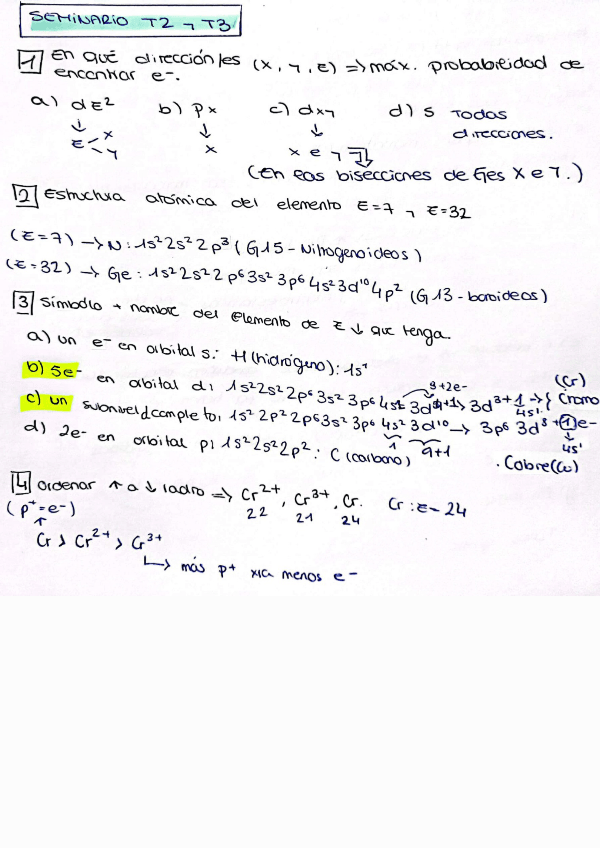 SEMINARIO T2 y T3
1 En qué dirección/es (x, y, z) => máx. probabilidad de
encontrar e-.
a) dz² b) px c) dxy d) s Todas
↓ ↓ ↓ direcciones.
z < x y x x e y
(En las bisecciones de ejes X e Y.)
2 Estructura atómica del elemento Z=7 y Z=32
(Z=7) → N: 1s² 2s² 2p³ (G15 - Nitrogenoideos)
(Z=32) → Ge: 1s² 2s² 2p⁶ 3s² 3p⁶ 4s² 3d¹⁰ 4p² (G13 - boroideos)
3 Símbolo + nombre del elemento de Z ↓ que tenga.
a) un e- en orbital s: H (hidrógeno): 1s¹
b) 5e- en orbital d: 1s² 2s² 2p⁶ 3s² 3p⁶ 4s² 3d⁴ → 3d³+1 → { Cromo (Cr)
9+2e-
4s¹
c) un subnivel d completo: 1s² 2p² 2p⁶ 3s² 3p⁶ 4s² 3d¹⁰ → 3p⁶ 3d⁸ + 1 e-
1 9+1 4s¹
. Cobre (Cu)
d) 2e- en orbital p: 1s² 2s² 2p²: C (carbono)
4 Ordenar ↑ a ↓ radio => Cr²⁺, Cr³⁺, Cr. Cr: Z = 24
22 21 24
(p⁺=e-)
↑
Cr > Cr²⁺ > Cr³⁺
↳ más p+ xra menos e-